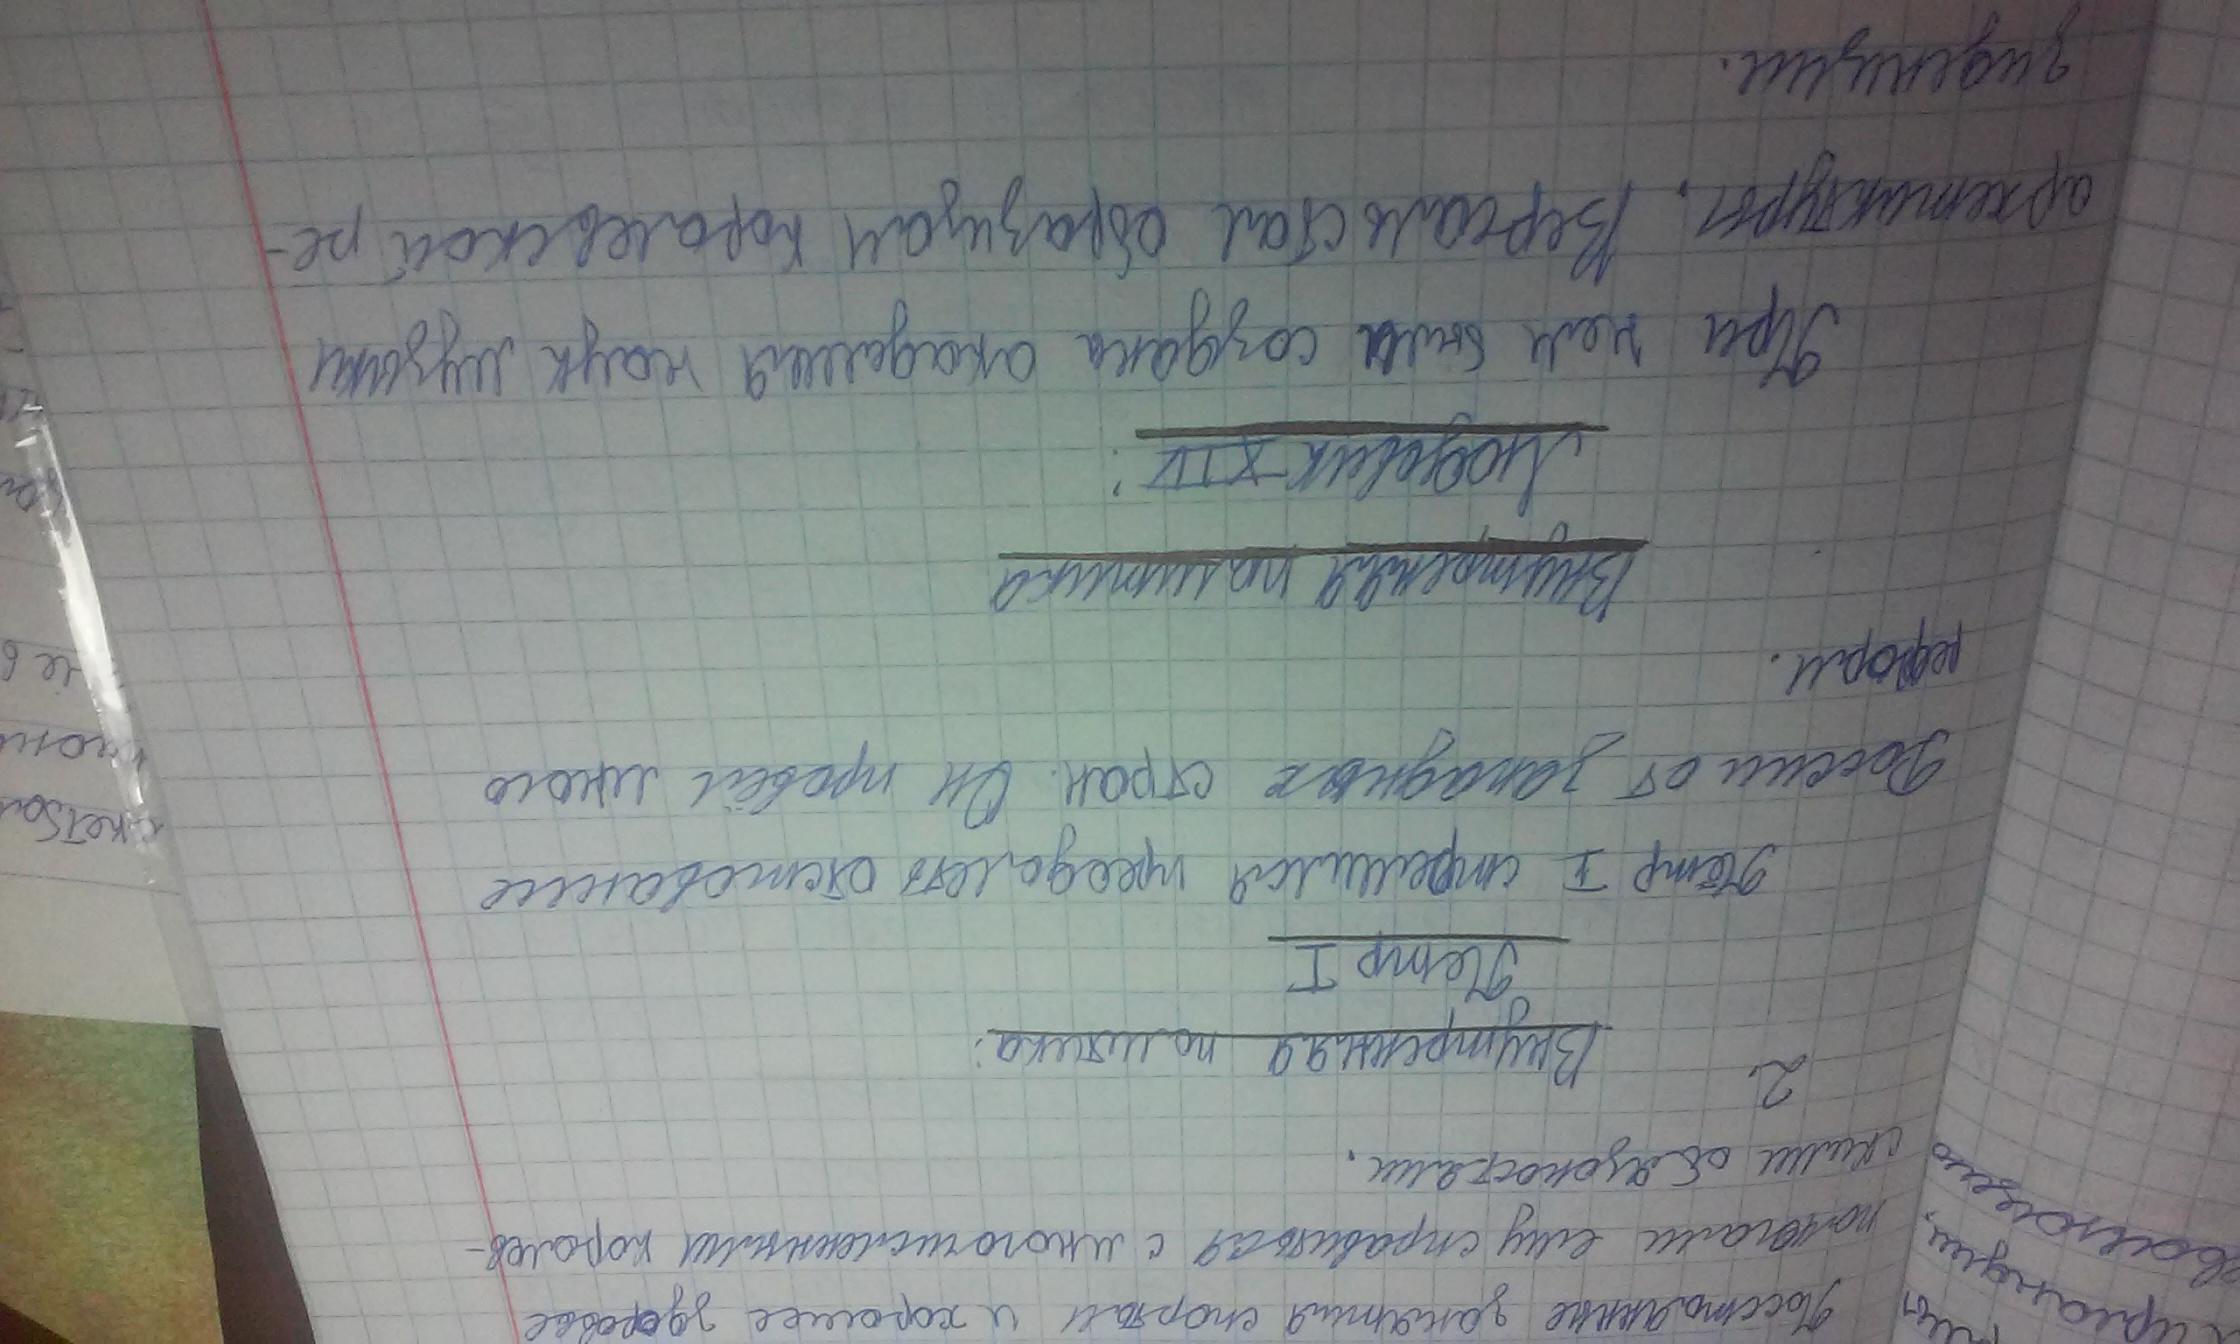 Постоянные занятия спортом и хорошее здоровье
помогали ему справиться с многочисленными королев-
скими обязоностями.
2. Внутренняя политика:
Петр I
Пётр I стремился преодалеть отставание
России от западных стран. Он провёл много
реформ.
Внутреняя политика
Людовик XIV:
При нем была создана академия наук музыки
архетиктуры. Версаль стал образцом королевской ре-
зиденции.